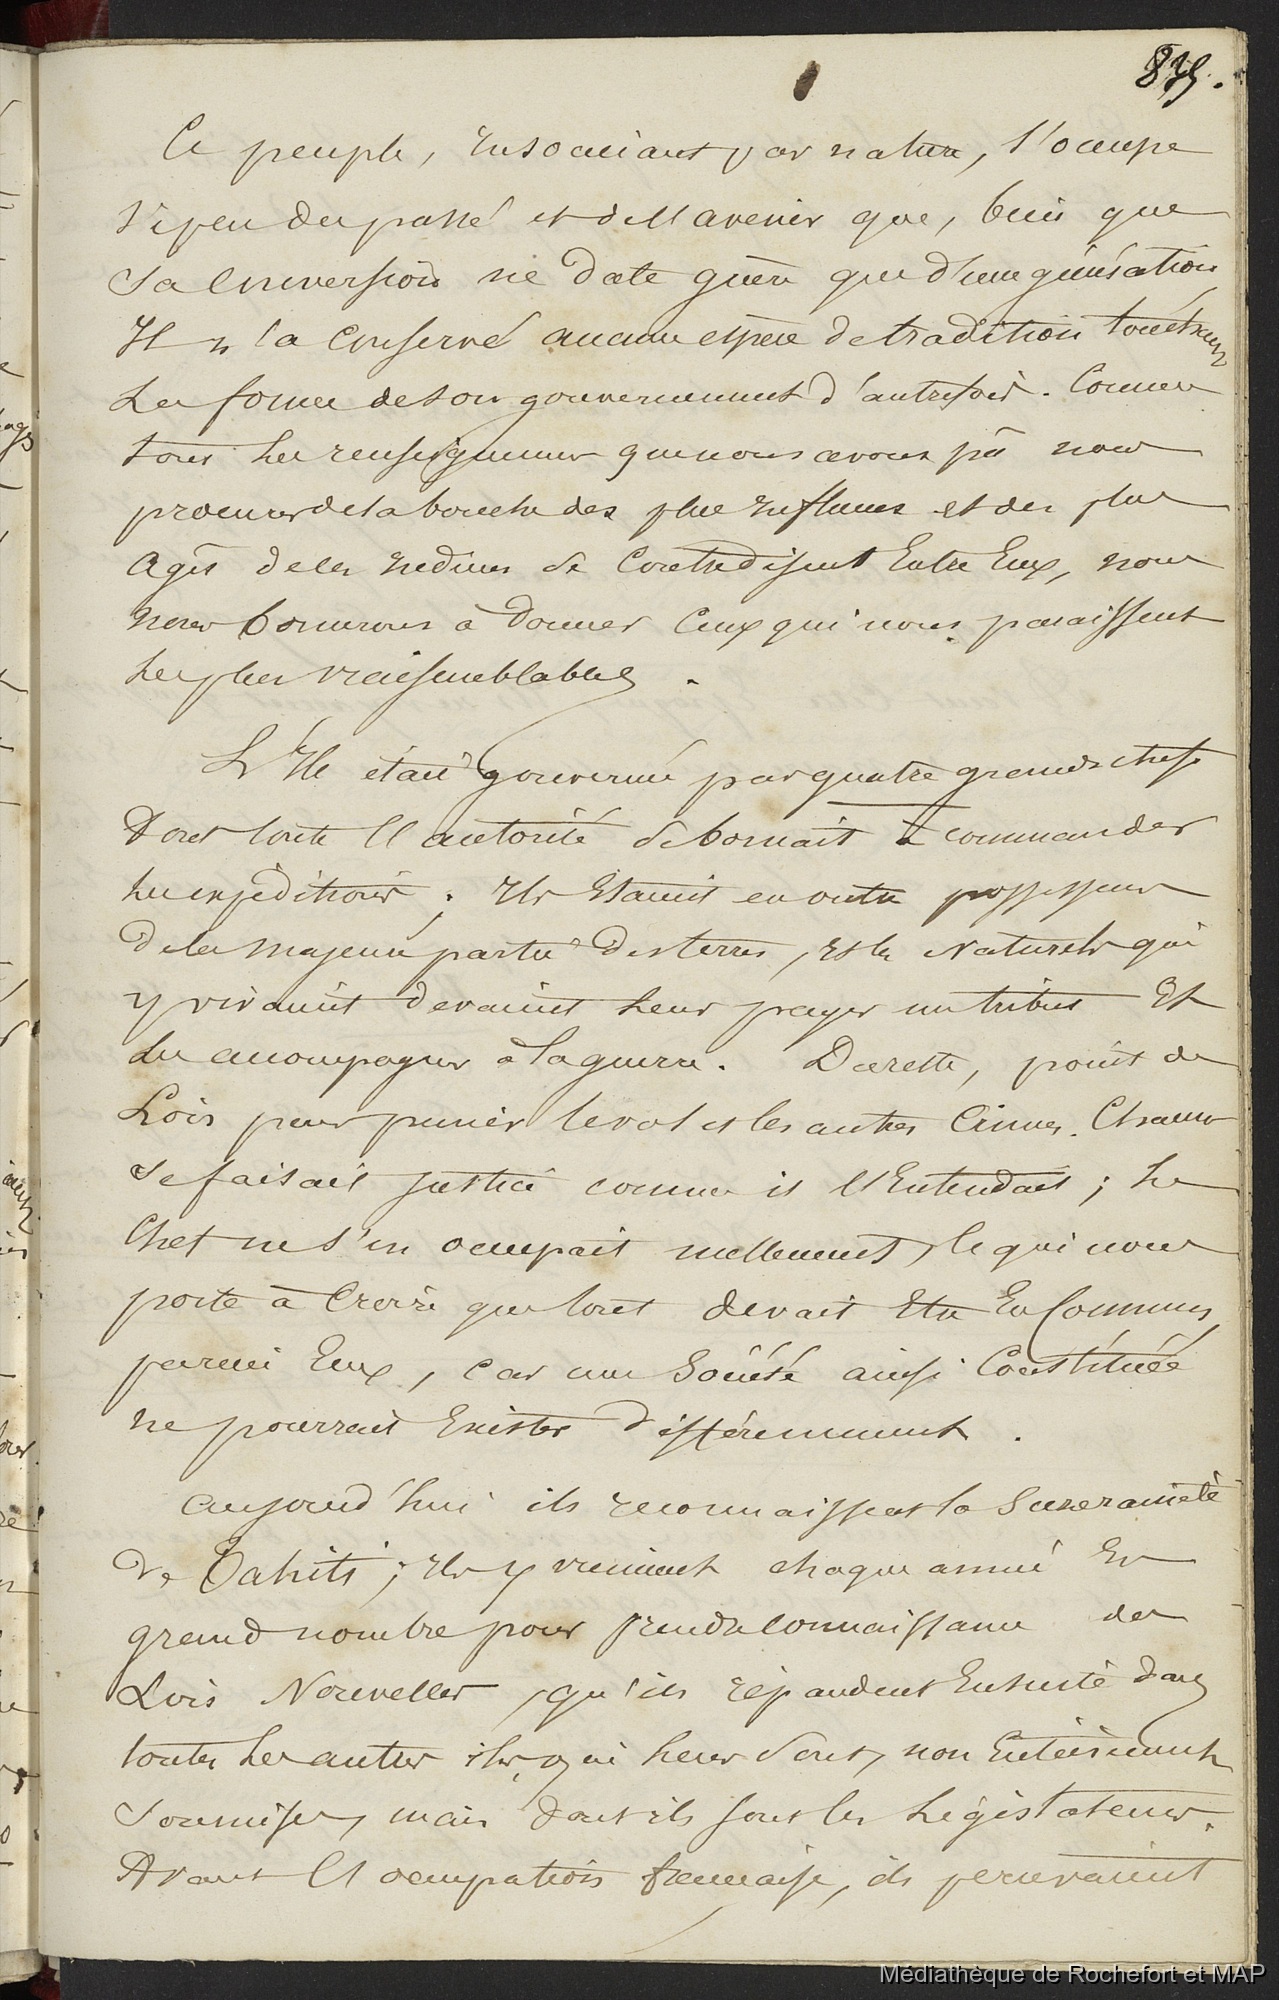 835.
Ce peuple, insouciant par nature, s'occupe
si peu du passé et de l'avenir que, bien que
sa conversion ne date guère que d'une génération,
Il n'a conservé aucune espèce de tradition touchant
la forme de son gouvernement d'autrefois. Comme
tous les renseignements que nous avons pû nous
procurer de la bouche des plus influens et des plus
Agés de ces indiens se contredisent Entre Eux, nous
nous bornerons à donner Ceux qui nous paraissent
les plus vraisemblables.
L'Ile était gouvernée par quatre grands chefs
Dont toute l'autorité se bornait à commander
les expéditions ; Ils Etaient en outre possesseurs
de la majeure partie des terres, et les Naturels qui
y vivaient devaient leur payer un tribut Et
les accompagner à la guerre. Du reste, point de
Lois pour punir le vol et les autres Crimes. Chacun
se faisait justice comme il l'Entendait ; le
Chef ne s'en occupait nullement, ce qui nous
porte à Croire que tout devait Etre En Commun
parmi Eux, car une Société ainsi Constituée
ne pourrait Exister différemment.
aujourd'hui ils reconnaissent la Suzeraineté
de Tahiti ; Ils y viennent chaque année En
grand nombre pour prendre connaissance des
Lois Nouvelles, qu'ils répandent Ensuite dans
toutes les autres iles, qui leur sont, non Entièrement
soumises, mais dont ils sont les législateurs.
Avant l'occupation française, ils percevaient
Médiathèque de Rochefort et MAP